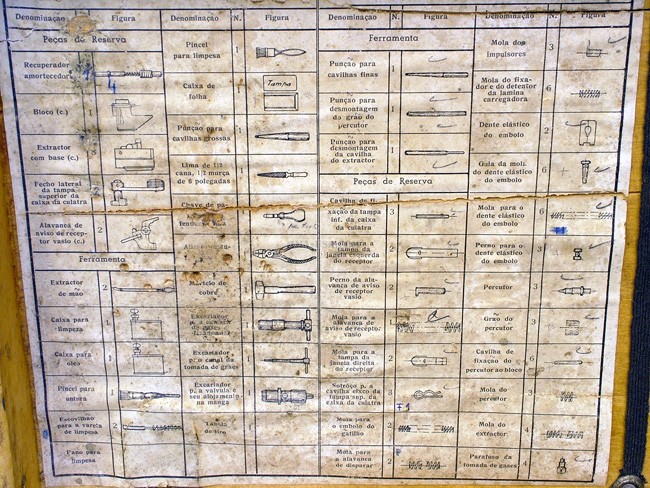 Denominação N. Figura Denominação N. Figura Denominação N. Figura Denominação N. Figura
Peças de Reserva
Recuperador
amortecedor
4
Bloco (c.)
Extractor
com base (c.)
Fecho lateral
da tampa
superior da
caixa da culatra
2
Alavanca de
aviso de recep-
tor vasio (c.)
2
Ferramenta
Extractor
de mão
2
Caixa para
limpeza
1
Caixa para
oleo
1
Pincel para
untura
1
Escovilhão
para a vareta
de limpesa
2
Pano para
limpesa
Pincel
para limpesa
1
Caixa de
folha
1
Tampa
Punção para
cavilhas grossas
Lima de 1/2
cana, 1/2 murça
de 6 polegadas
1
Chave de pa-
Martelo de
cobre
Escariador
Escariador
p. o canal da
tomada de gases
1
Escariador
p. a valvula e
seu alojamento
na manga
1
Tabela
de tiro
Ferramenta
Punção para
cavilhas finas
1
Punção para
desmontagem
do grão do
percutor
1
Punção para
desmontagem
da cavilha
do extractor
1
Peças de Reserva
Cavilha de fi-
xação da tampa
inf. da caixa
da culatra
3
Mola para a
tampa da
janela esquerda
do receptor
2
Perno da ala-
vanca de aviso
de receptor
vasio
2
Mola para a
alavanca de
aviso de recept.
vasio
1
Mola para
a tampa da
janela direita
do receptor
2
3
Mola para
o embolo do
gatilho
2
Mola para
a alavanca
de disparar
2
Mola dos
impulsores
3
Mola do fixa-
dor e do detentor
da lamina
carregadora
6
Dente elástico
do embolo
2
Guia da mola
do dente elástico
do embolo
6
Mola para o
dente elástico
do embolo
6
Perno para o
dente elástico
do embolo
3
Percutor
3
Grão do
percutor
3
Cavilha de
fixação do
percutor ao bloco
6
Mola do
percutor
Mola do
extractor
4
Parafuso da
tomada de gases
4